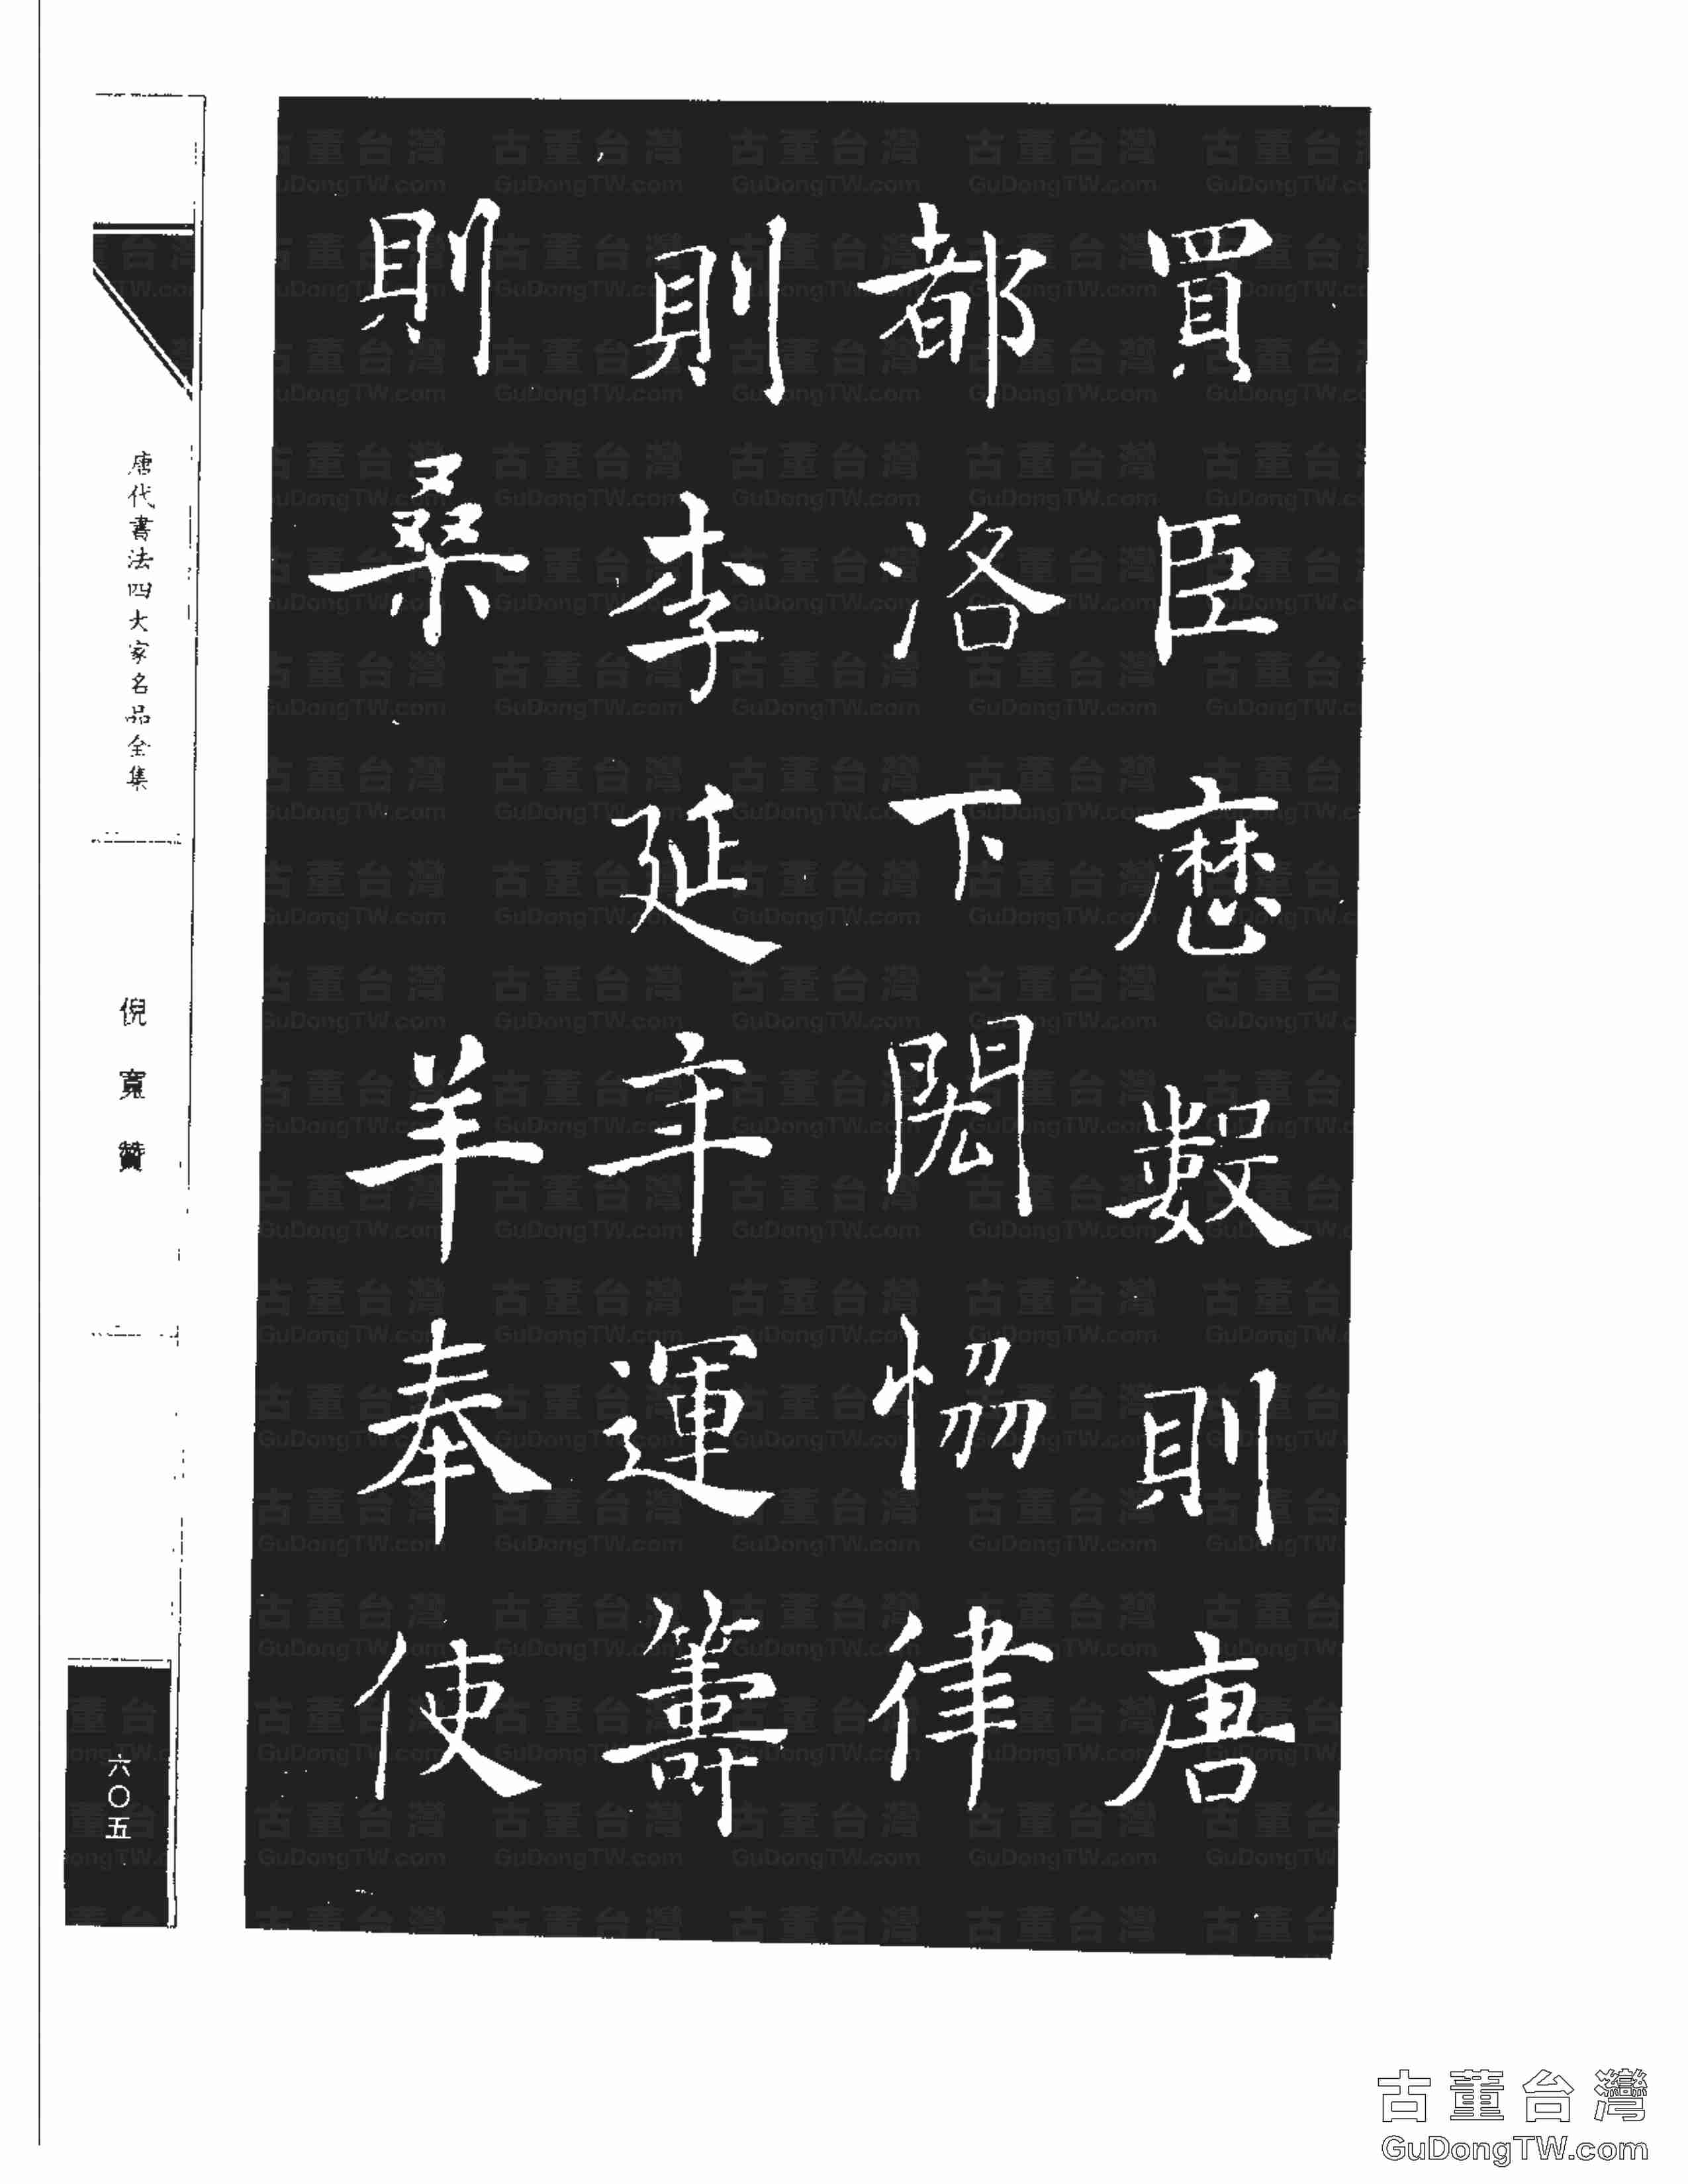 買臣歷數則唐
都洛下閎恊律
則李延年運籌
則桑 羊奉使
唐代書法四大家名品全集
倪寬贊
六〇五
古董台灣
GuDongTW.com